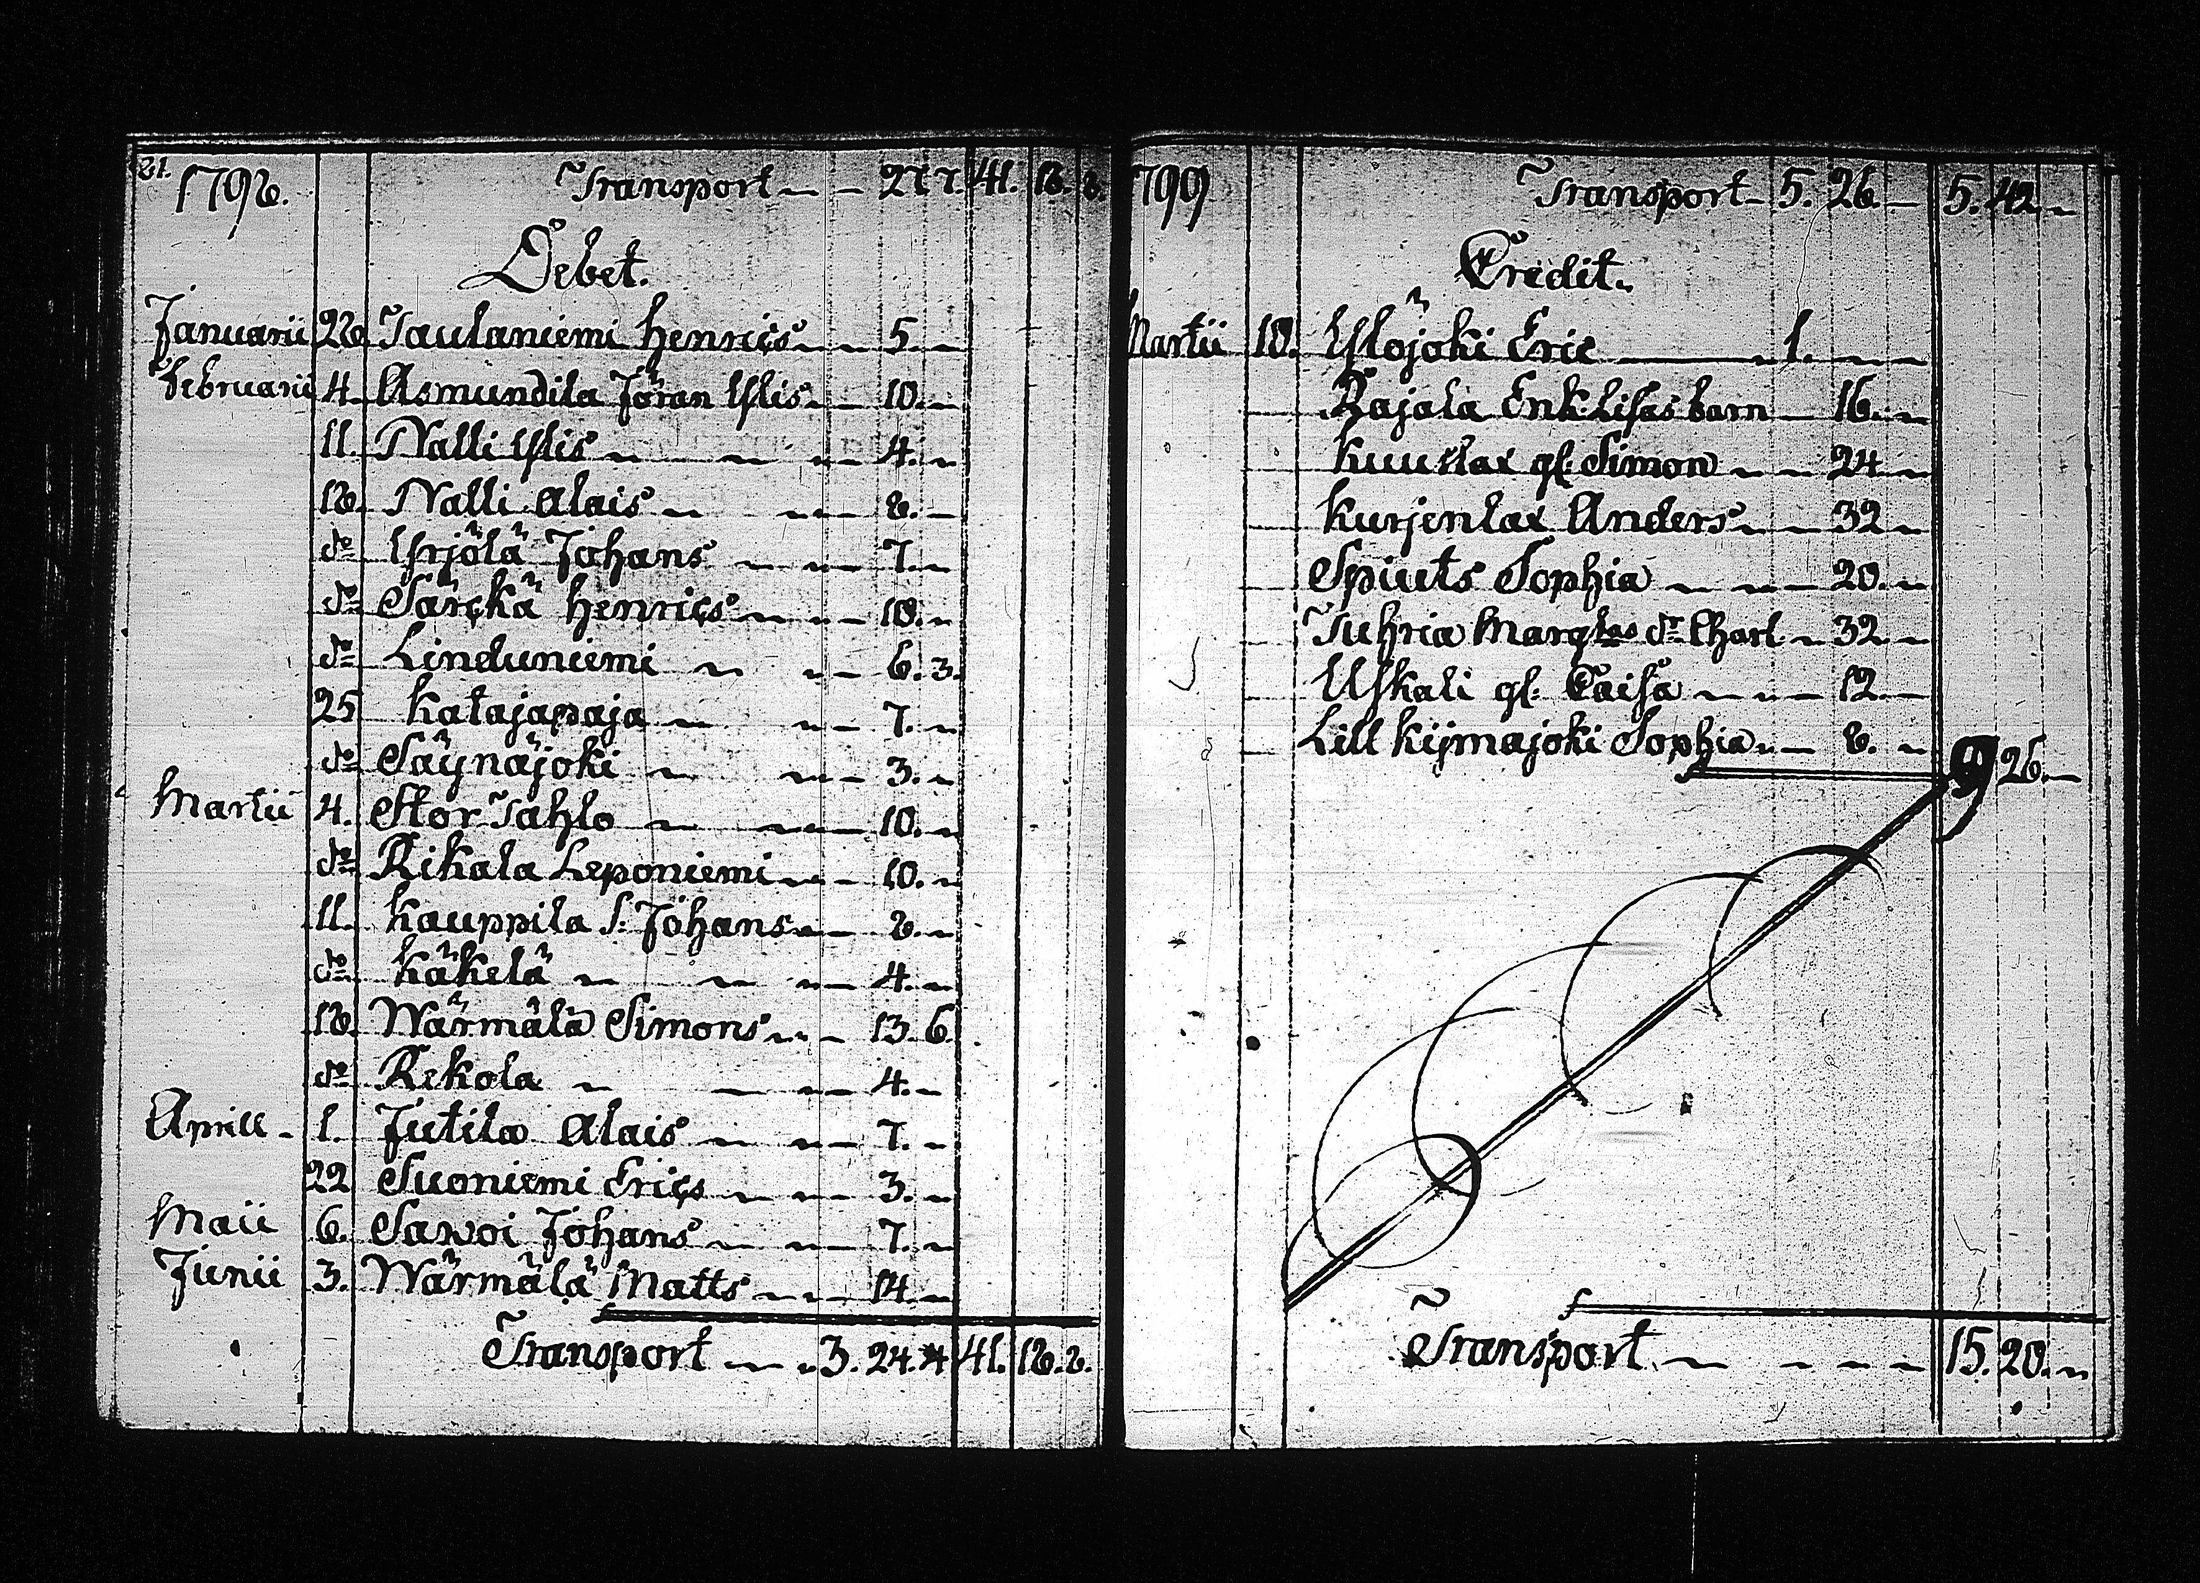 81.
1798. Transport 27 7. 41. 18. 8.
Debet.
Januarii 28 Taulaniemi Henrics 5.
Februarii 4. Asmundila Jöran Ylis 10.
11. Nalli Ylis 4.
18. Nalli Alais 8.
do Yrjölä Johans 7.
do Särckä Henrics 10.
do Linduniemi 6. 3.
25 Katajapaja 7.
do Säynäjoki 3.
Martii 4. Stor Tahlo 10.
do Rikala Leponiemi 10.
11. Kauppila S: Johans 8.
do Käkelä 4.
18. Wärmälä Simons 13. 6.
do Rekola 4.
Aprill 1. Jutila Alais 7.
22 Suoniemi Erics 3.
Maii 6. Sawoi Johans 7.
Junii 3. Wärmälä Matts 14.
Transport 3. 24. 4 41. 18. 8.
1799 Transport 5. 26 5. 42
Credit.
Martii 10. Ylöjoki Eric 1.
Rajala Enk. Lisas barn 16.
Kuuslax gl: Simon 24
Kurjenlax Anders 32
Spiuts Sophia 20.
Tuhria Margtas dr Charl. 32
Uskali gl: Caisa 12
Lill Kijmajoki Sophia 8. 9 26.
Transport 15. 20.